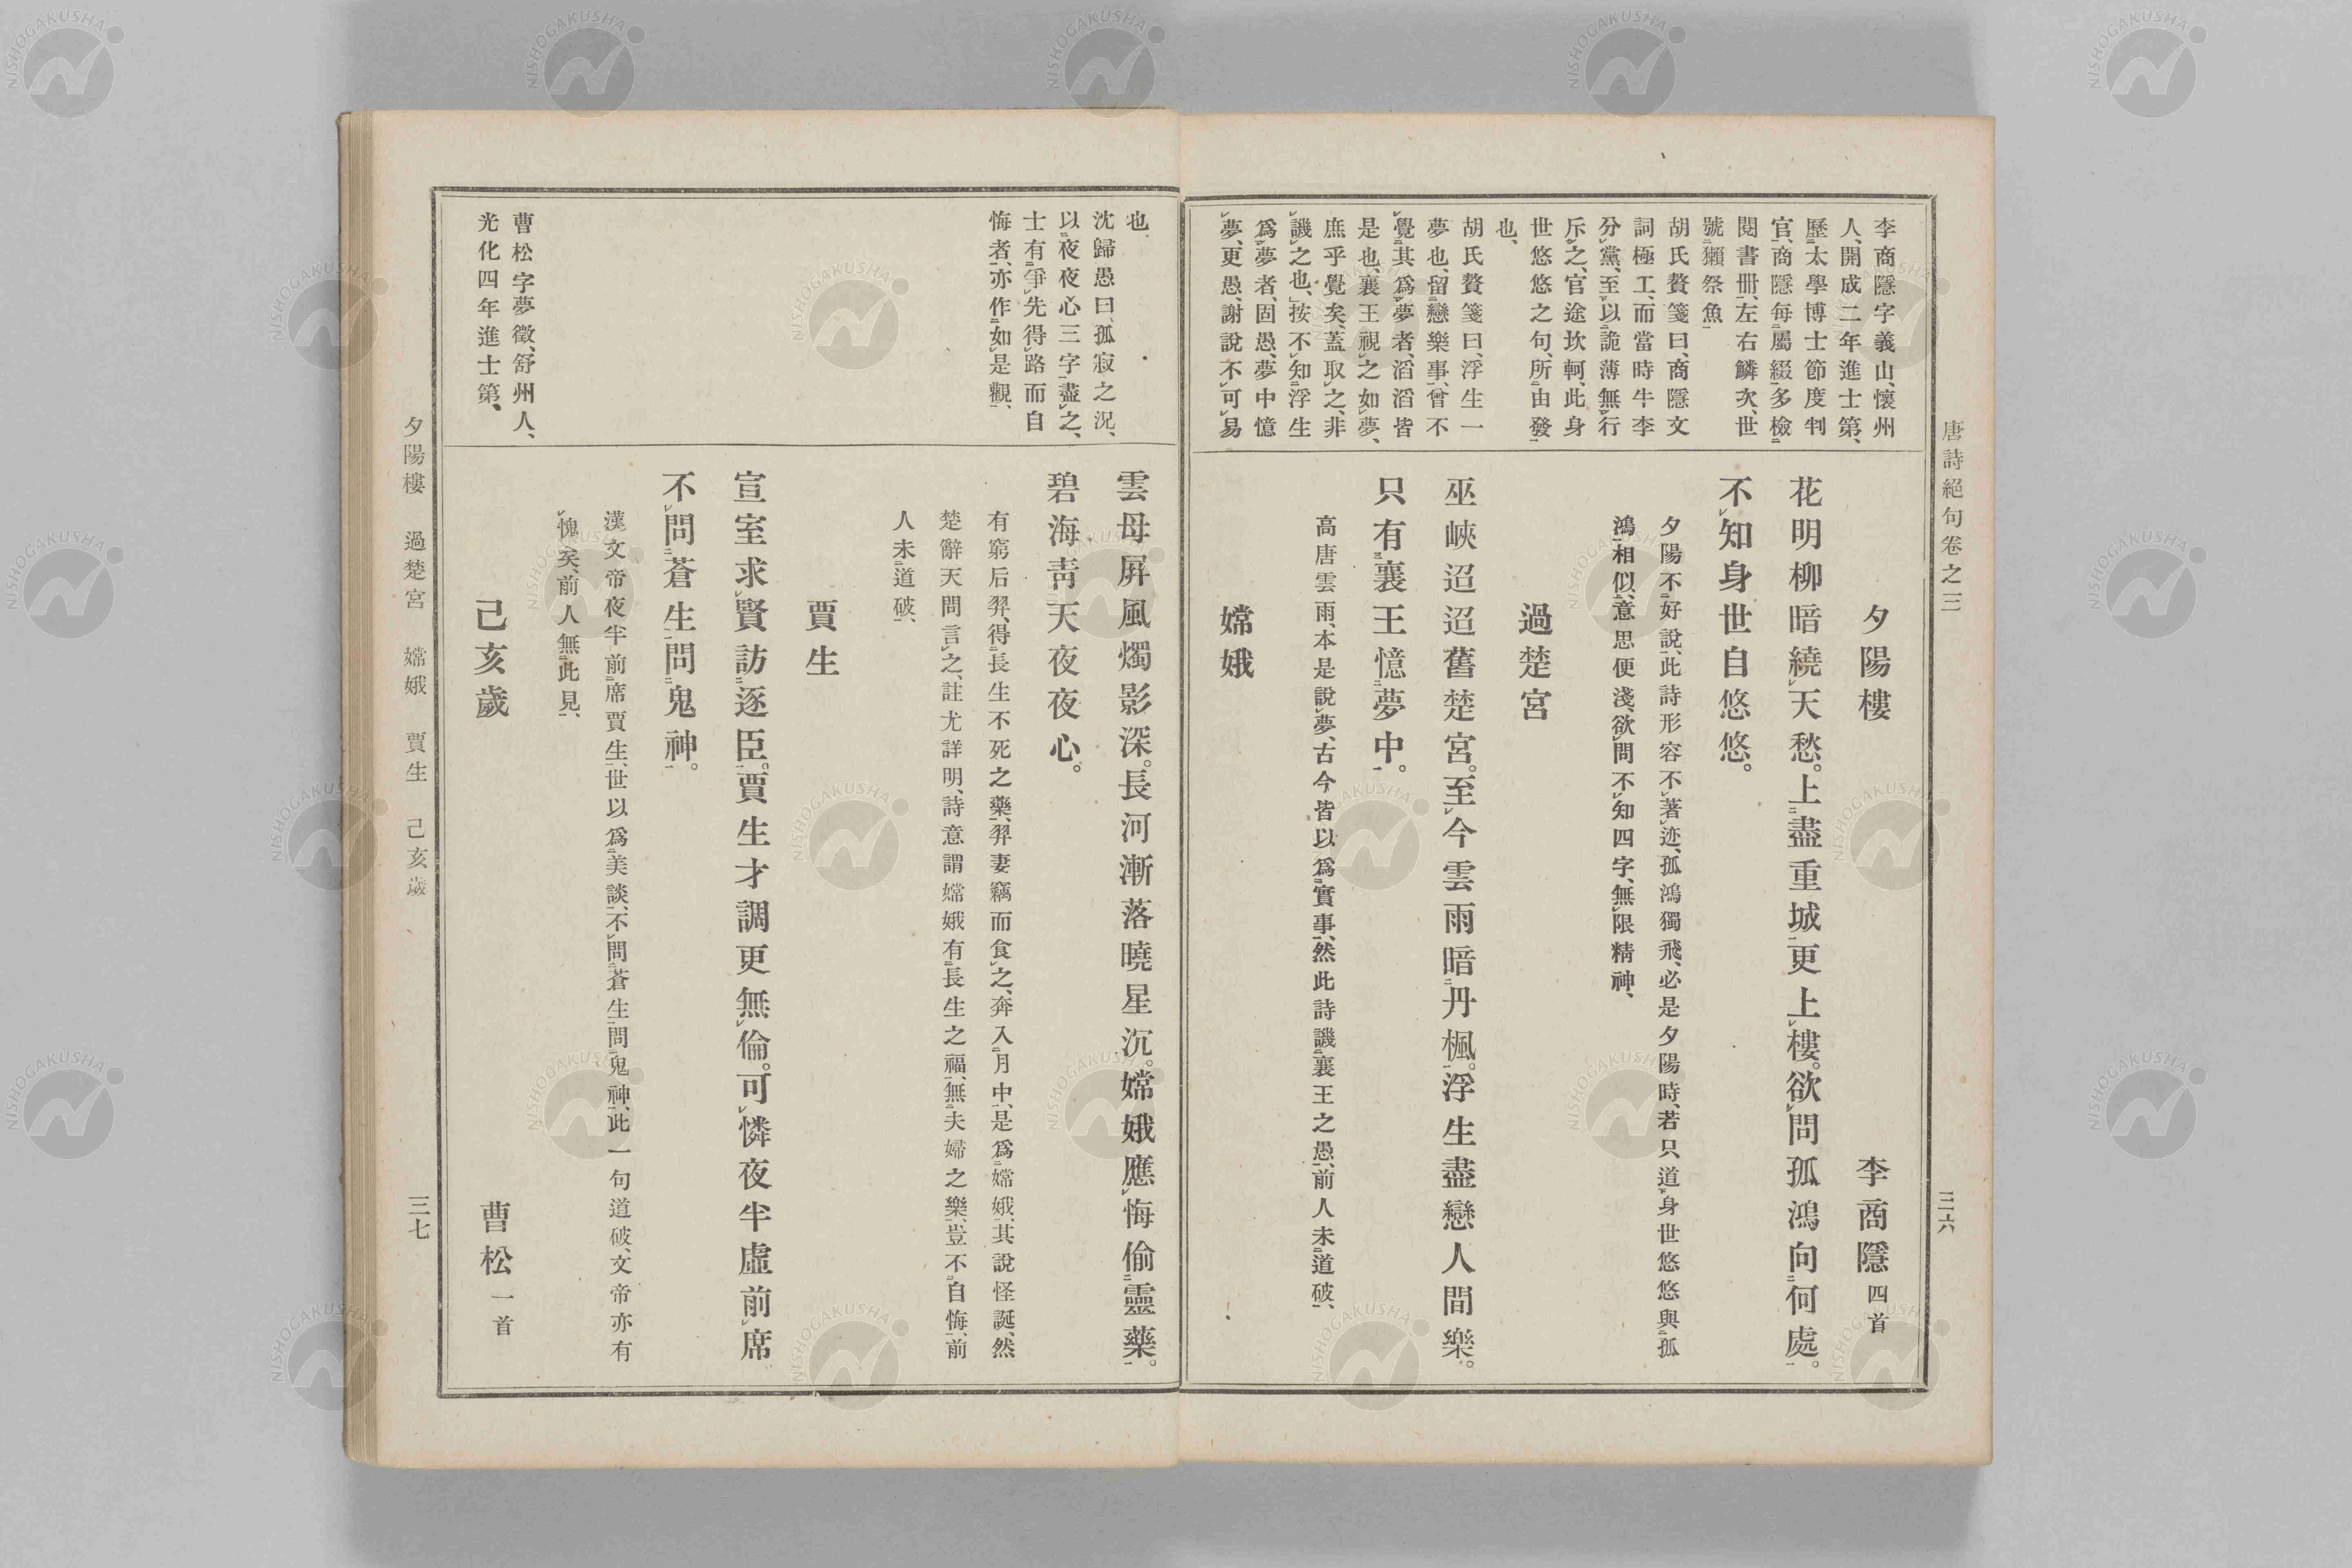 唐詩絕句卷之三
三六
李商隱字義山、懷州
人、開成二年進士第、
歷太學博士節度判
官、商隱每屬綴多檢
閱書冊、左右鱗次、世
號獺祭魚
胡氏贅箋曰、商隱文
詞極工、而當時牛李
分黨、至以詭薄無行
斥之、官途坎軻、此身
世悠悠之句、所由發
也、
胡氏贅箋曰、浮生一
夢也、留戀樂事、曾不
覺其爲夢者、滔滔皆
是也、襄王視之如夢、
庶乎覺矣、蓋取之、非
譏之也、按不知浮生
爲夢者、固愚、夢中憶
夢、更愚、謝說不可易
夕陽樓 李商隱四首
花明柳暗繞天愁。上盡重城更上樓。欲問孤鴻向何處。
不知身世自悠悠。
夕陽不好說、此詩形容不著迹、孤鴻獨飛、必是夕陽時、若只道身世悠悠與孤
鴻相似、意思便淺、欲問不知四字、無限精神、
過楚宮
巫峽迢迢舊楚宮。至今雲雨暗丹楓。浮生盡戀人間樂。
只有襄王憶夢中。
高唐雲雨、本是說夢、古今皆以爲實事、然此詩譏襄王之愚、前人未道破、
嫦娥
也
沈歸愚曰、孤寂之況、
以夜夜心三字盡之、
士有爭先得路而自
悔者、亦作如是觀、
曹松字夢徵、舒州人、
光化四年進士第、
雲母屏風燭影深。長河漸落曉星沉。嫦娥應悔偷靈藥。
碧海靑天夜夜心。
有窮后羿、得長生不死之藥、羿妻竊而食之、奔入月中、是爲嫦娥、其說怪誕、然
楚辭天問言之、註尤詳明、詩意謂嫦娥有長生之福、無夫婦之樂、豈不自悔、前
人未道破、
賈生
宣室求賢訪逐臣。賈生才調更無倫。可憐夜半虛前席
不問蒼生問鬼神。
漢文帝夜半前席賈生、世以爲美談、不問蒼生問鬼神、此一句道破、文帝亦有
愧矣、前人無此見、
己亥歲 曹松一首
夕陽樓 過楚宮 嫦娥 賈生 己亥歲
三七
NISHOGAKUSHA